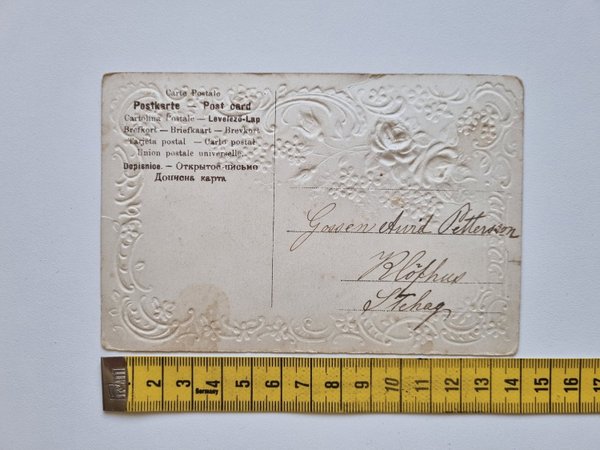 Carte Postale
Postkarte — Post card
Cartolina Postale — Levelező-Lap
Brefkort — Briefkaart — Brevkort
Tarjeta postal — Carto postal
Union postale universelle.
Dopisnice. — Открытое письмо
Дописна карта
Gossen Arvid Pettersson
Klöfhus
Stehag
2 3 4 5 6 7 8 9 10 11 12 13 14 15 16 17
Germany